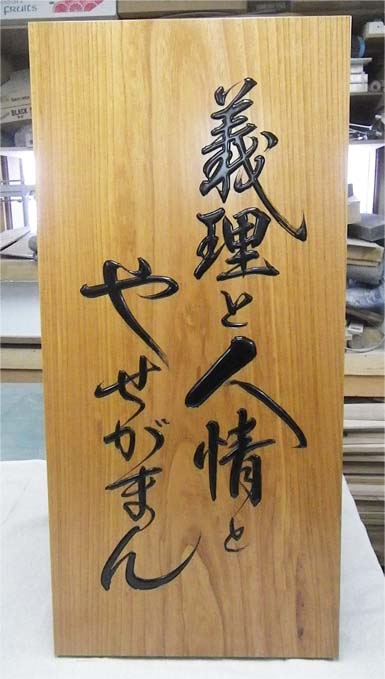 義理と人情と
やせがまん
FRUITS
BLACK